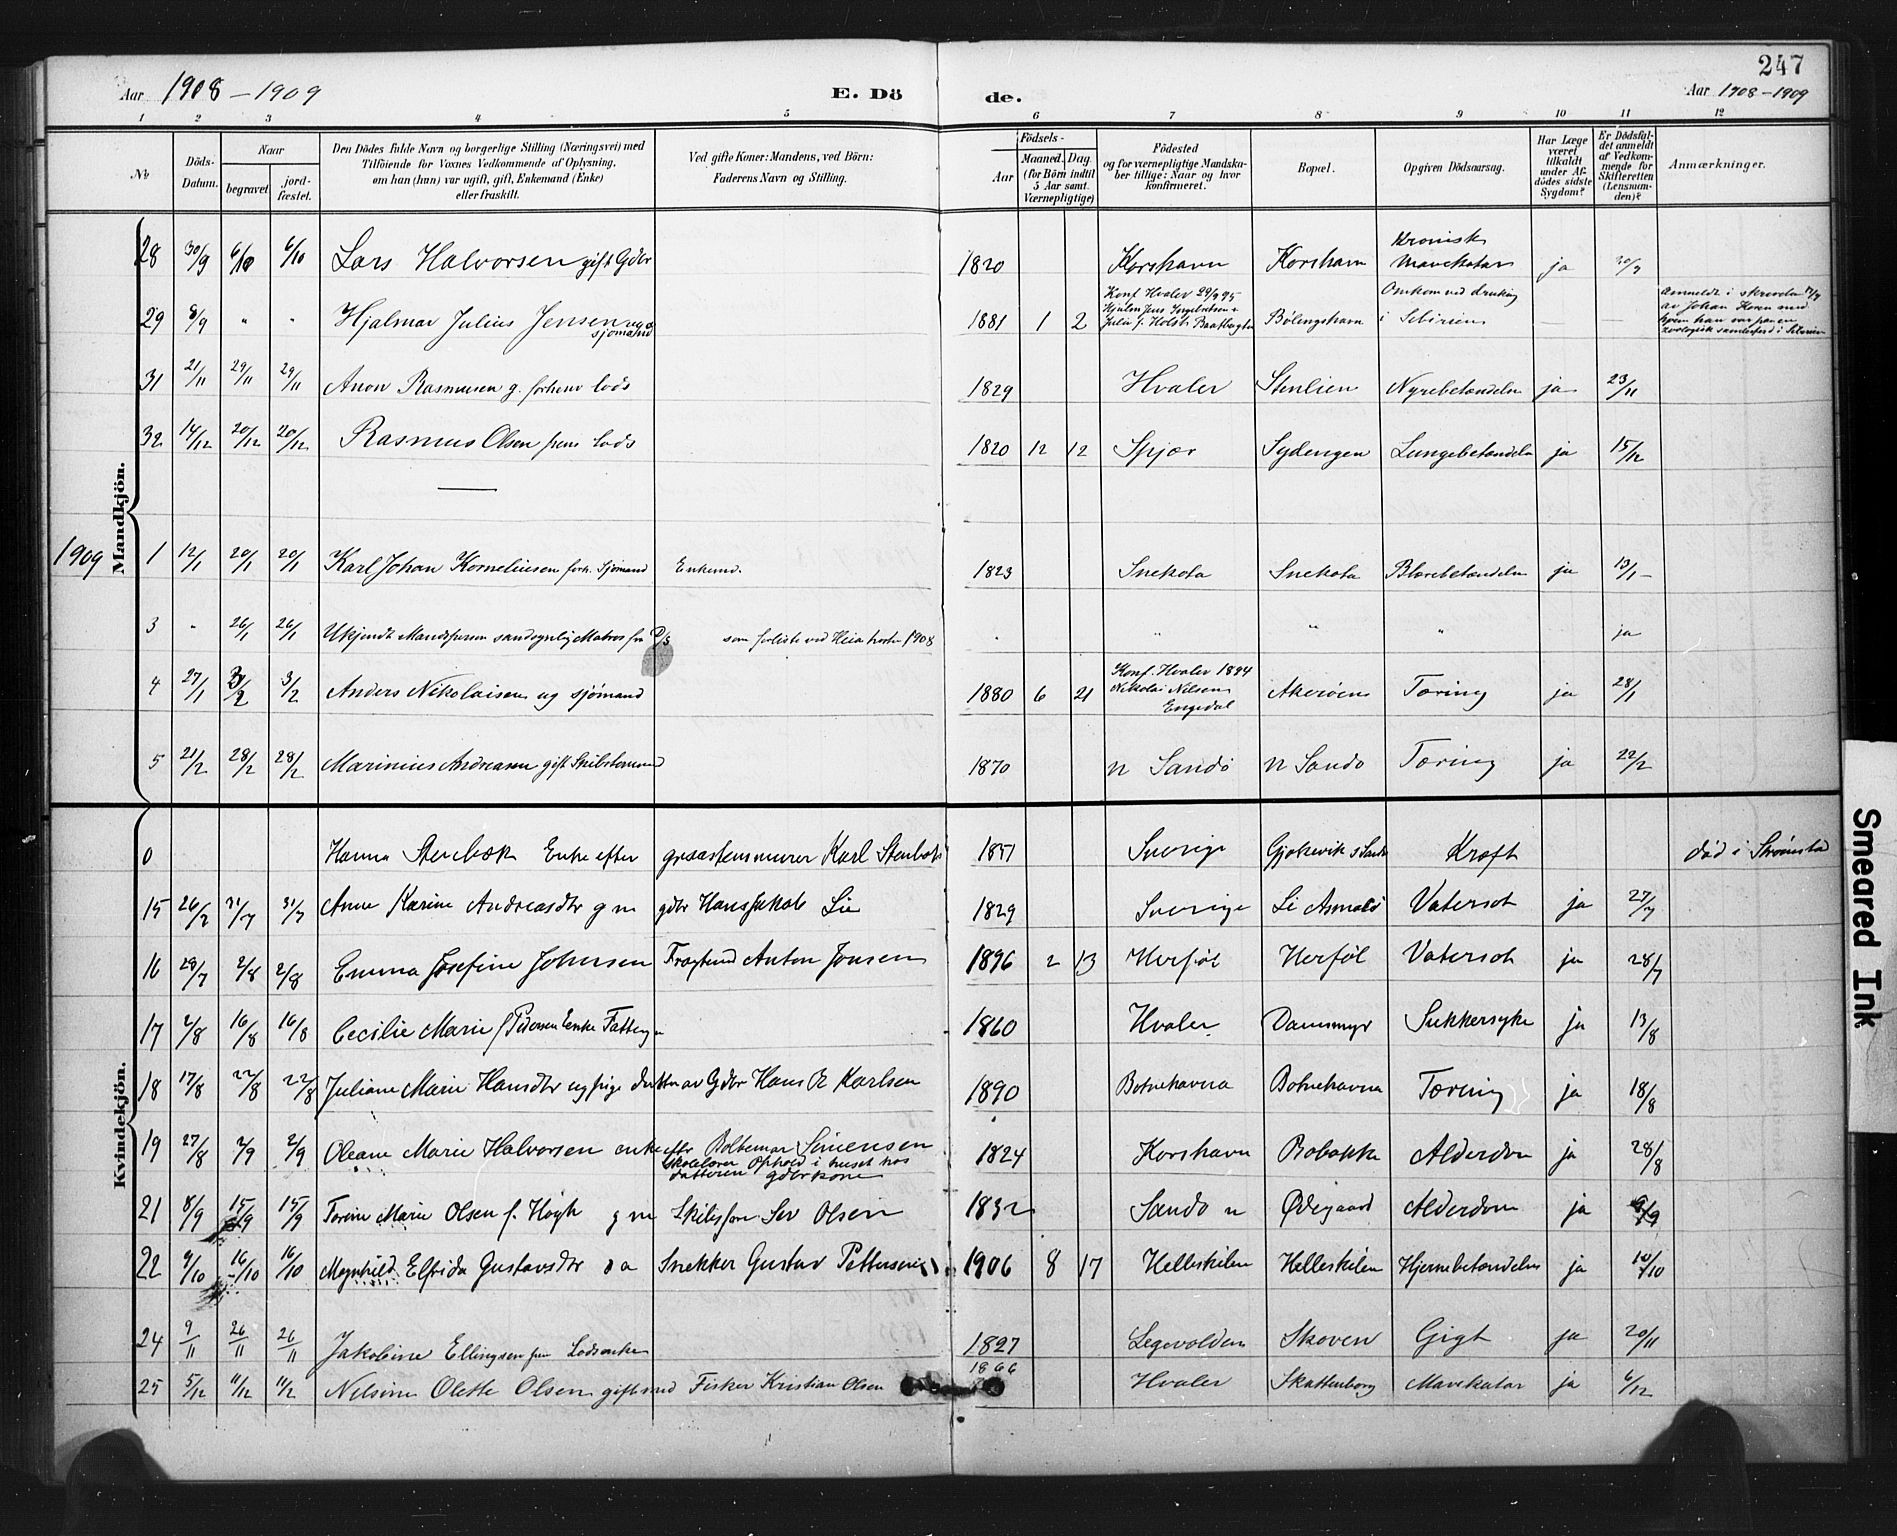 247
Aar 1908 – 1909 E. Dö de. Aar 1908 – 1909
1 2 3 4 5 6 7 8 9 10 11 12
No Döds-Datum. Naar begravet jordfæstet. Den Dödes fulde Navn og borgerlige Stilling (Næringsvei) med Tilföiende for Voxnes Vedkommende af Oplysning, om han (hun) var ugift, gift, Enkemand (Enke) eller fraskilt. Ved gifte Koner: Mandens, ved Börn: Faderens Navn og Stilling. Födsels- Aar Maaned. Dag. (for Börn indtil 5 Aar samt Værnepligtige) Födested og for værnepligtige Mandskaber tillige: Naar og hvor konfirmeret. Bopæl. Opgiven Dödsaarsag. Har Læge været tilkaldt under Afdödes sidste Sygdom? Er Dödsfaldet anmeldt af Vedkommende for Skifteretten (Lensmanden)? Anmærkninger.
Mandkjön.
28 30/9 6/10 6/10 Lars Halvorsen gift Gdbr 1820 Korshavn Korshavn Kronisk Mavekatar ja 30/9
29 8/9 " " Hjalmar Julius Jensen ug sjömand 1881 1 2 Konf Hvaler 29/9 95 Bölingshavn Omkom ved drukning i Sibirien
31 21/11 29/11 29/11 Anon Rasmusen g. forhenv lods 1829 Hvaler Stenlien Nyrebetændelse ja 23/11
32 14/12 20/12 20/12 Rasmus Olsen fhenv Lods 1820 12 12 Spjær Sydengen Lungebetændelse ja 15/12
1909
1 12/1 20/1 20/1 Karl Johan Korneliusen forh. Sjømand Enkemd. 1823 Snekota Snekota Blærebetændelse ja 13/1
3 " 26/1 26/1 Ukjendt Mandsperson sandsynlig Matros fra D/S som forliste ved Heia høsten 1908 " " " " ja
4 27/1 3/2 3/2 Anders Nikolaisen ug sjömand 1880 6 21 Konf. Hvaler 1894 Nikolai Nilsen Engedal Akeröen Tæring ja 28/1
5 21/2 28/2 28/2 Marinius Andreasen gift Skibstømmerm 1870 n Sandö n Sandö Tæring ja 22/2
Kvindekjön.
0 Hanna Stenbæk Enke efter graastensmurer Karl Stenbæk 1851 Sverige Gjøkevik s Sandø Kræft död i Strømstad
15 26/7 31/7 31/7 Anne Karine Andreasdtr g m gdbr Hans Jakob Lie 1829 Sverige Li Asmalö Vatersot ja 27/7
16 28/7 2/8 2/8 Emma Josefine Johnsen Fragtmd Anton Jonsen 1896 2 13 Herföl Herföl Vatersot ja 28/7
17 2/8 16/8 16/8 Cecilie Marie f Pedersen Enke Fattig 1860 Hvaler Dammyr Sukkersyke ja 13/8
18 17/8 22/8 22/8 Juliane Marie Hansdtr ug pige datter av Gdbr Hans Karlsen 1890 Botnehavna Botnehavna Tæring ja 18/8
19 27/8 2/9 2/9 Oleane Marie Halvorsen enke eftr Boltemar Simensen Skolelærer Ophold i huset hos datteren gdbrkone 1824 Korshavn Robakke Alderdom ja 28/8
21 8/9 15/9 15/9 Torine Marie Olsen f. Høgh g m Skibsfører Sev Olsen 1832 Sandö n Ödegaard Alderdom ja 9/9
22 9/10 16/10 16/10 Magnhild Elfrida Gustavsdtr d a Snekker Gustav Pettersen 1906 8 17 Helleskilen Helleskilen Hjernebetændelse ja 10/10
24 9/11 26/11 26/11 Jakobine Ellingsen fhv Lodsenke 1827 Legevolden Skoven Gigt ja 20/11
25 5/12 11/12 11/12 Nilsine Olette Olsen gift med Fisker Kristian Olsen 1866 Hvaler Skattenborg Mavekatar ja 6/12
Smeared Ink